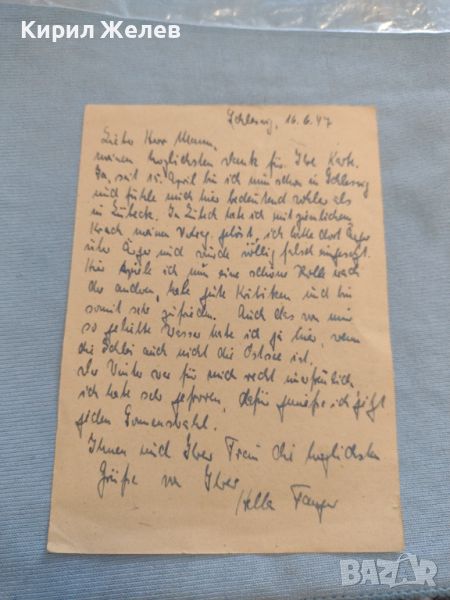 Кирил Желев
Schleswig, 16.6.47
Lieber Herr Mann,
meinen herzlichsten Dank für Ihre Karte.
Ja, seit 15. April bin ich nun schon in Schleswig
und fühle mich hier bedeutend wohler als
in Lübeck. In Lübeck habe ich mit ziemlichem
Krach meinen Vertrag gelöst, ich hatte dort Ärger
über Ärger und wurde völlig falsch eingesetzt.
Hier spiele ich nun eine schöne Rolle nach
der anderen, habe gute Kritiken und bin
somit sehr zufrieden. Auch das von mir
so geliebte Wasser habe ich ja hier, wenn
die Schlei auch nicht die Ostsee ist.
Der Winter war für mich recht unerfreulich
ich habe sehr gefroren, dafür genieße ich jetzt
jeden Sonnenstrahl.
Ihnen und Ihrer Frau die herzlichsten
Grüße von Ihrer
Hella
BAZAR
bg